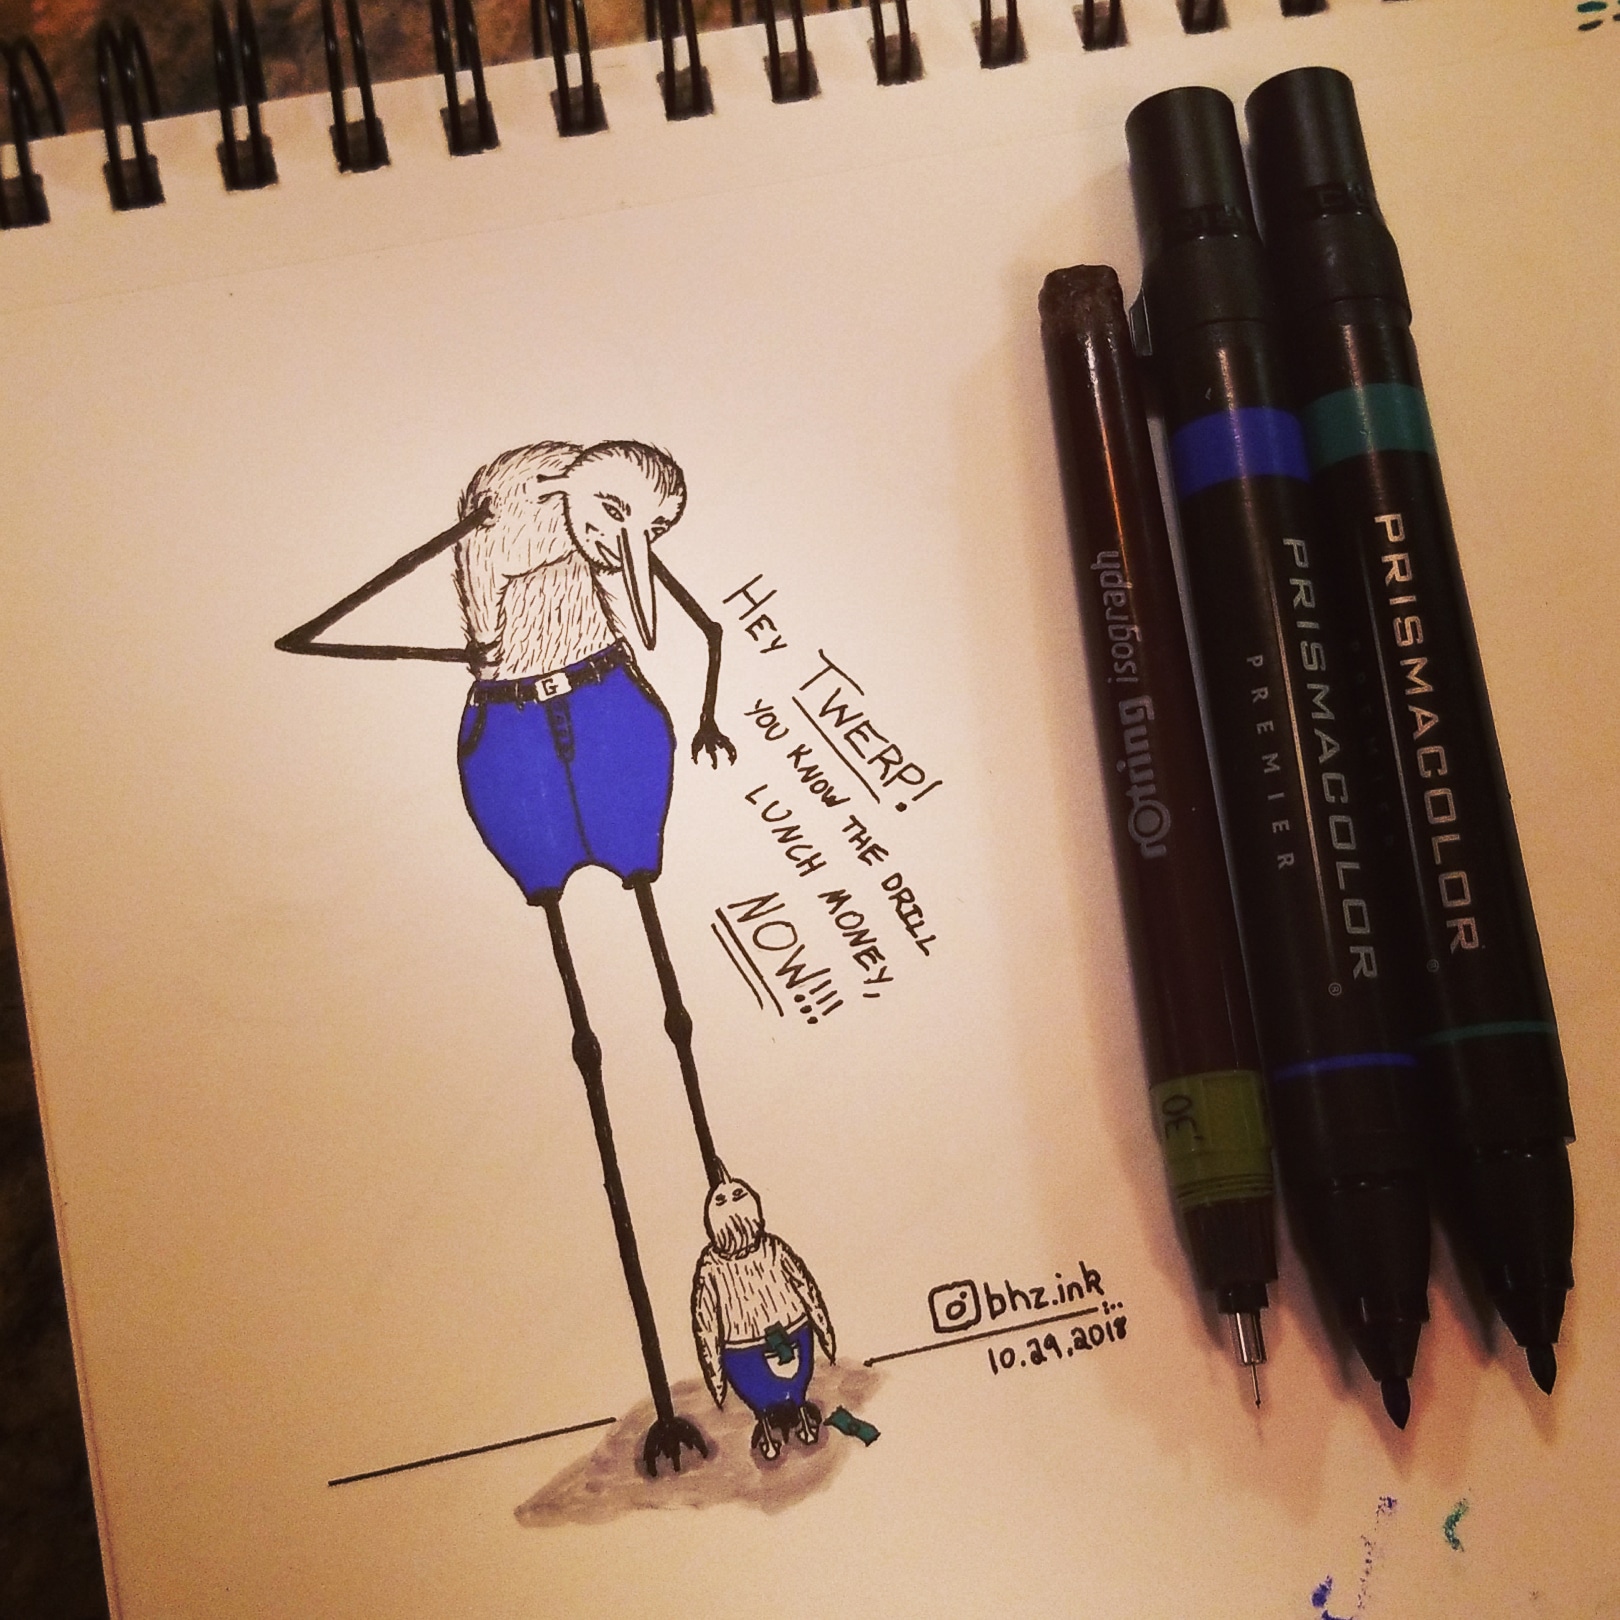 HEY TWERP!
YOU KNOW THE DRILL
LUNCH MONEY,
NOW!!!
G
bhz.ink
10.29.2018
rOtring isograph
.30
PRISMACOLOR®
PREMIER
PRISMACOLOR®